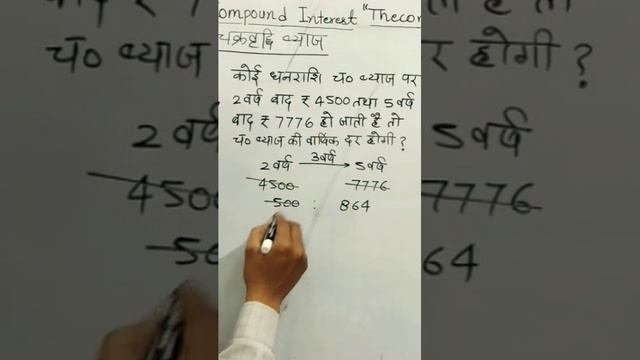 Compound Interest "Thecon
चक्रवृद्धि ब्याज
कोई धनराशि च० ब्याज पर
2 वर्ष बाद ₹ 4500 तथा 5 वर्ष
बाद ₹ 7776 हो जाती है तो
च० ब्याज की वार्षिक दर होगी ?
2 वर्ष 3 वर्ष 5 वर्ष
4500 7776
500 : 864